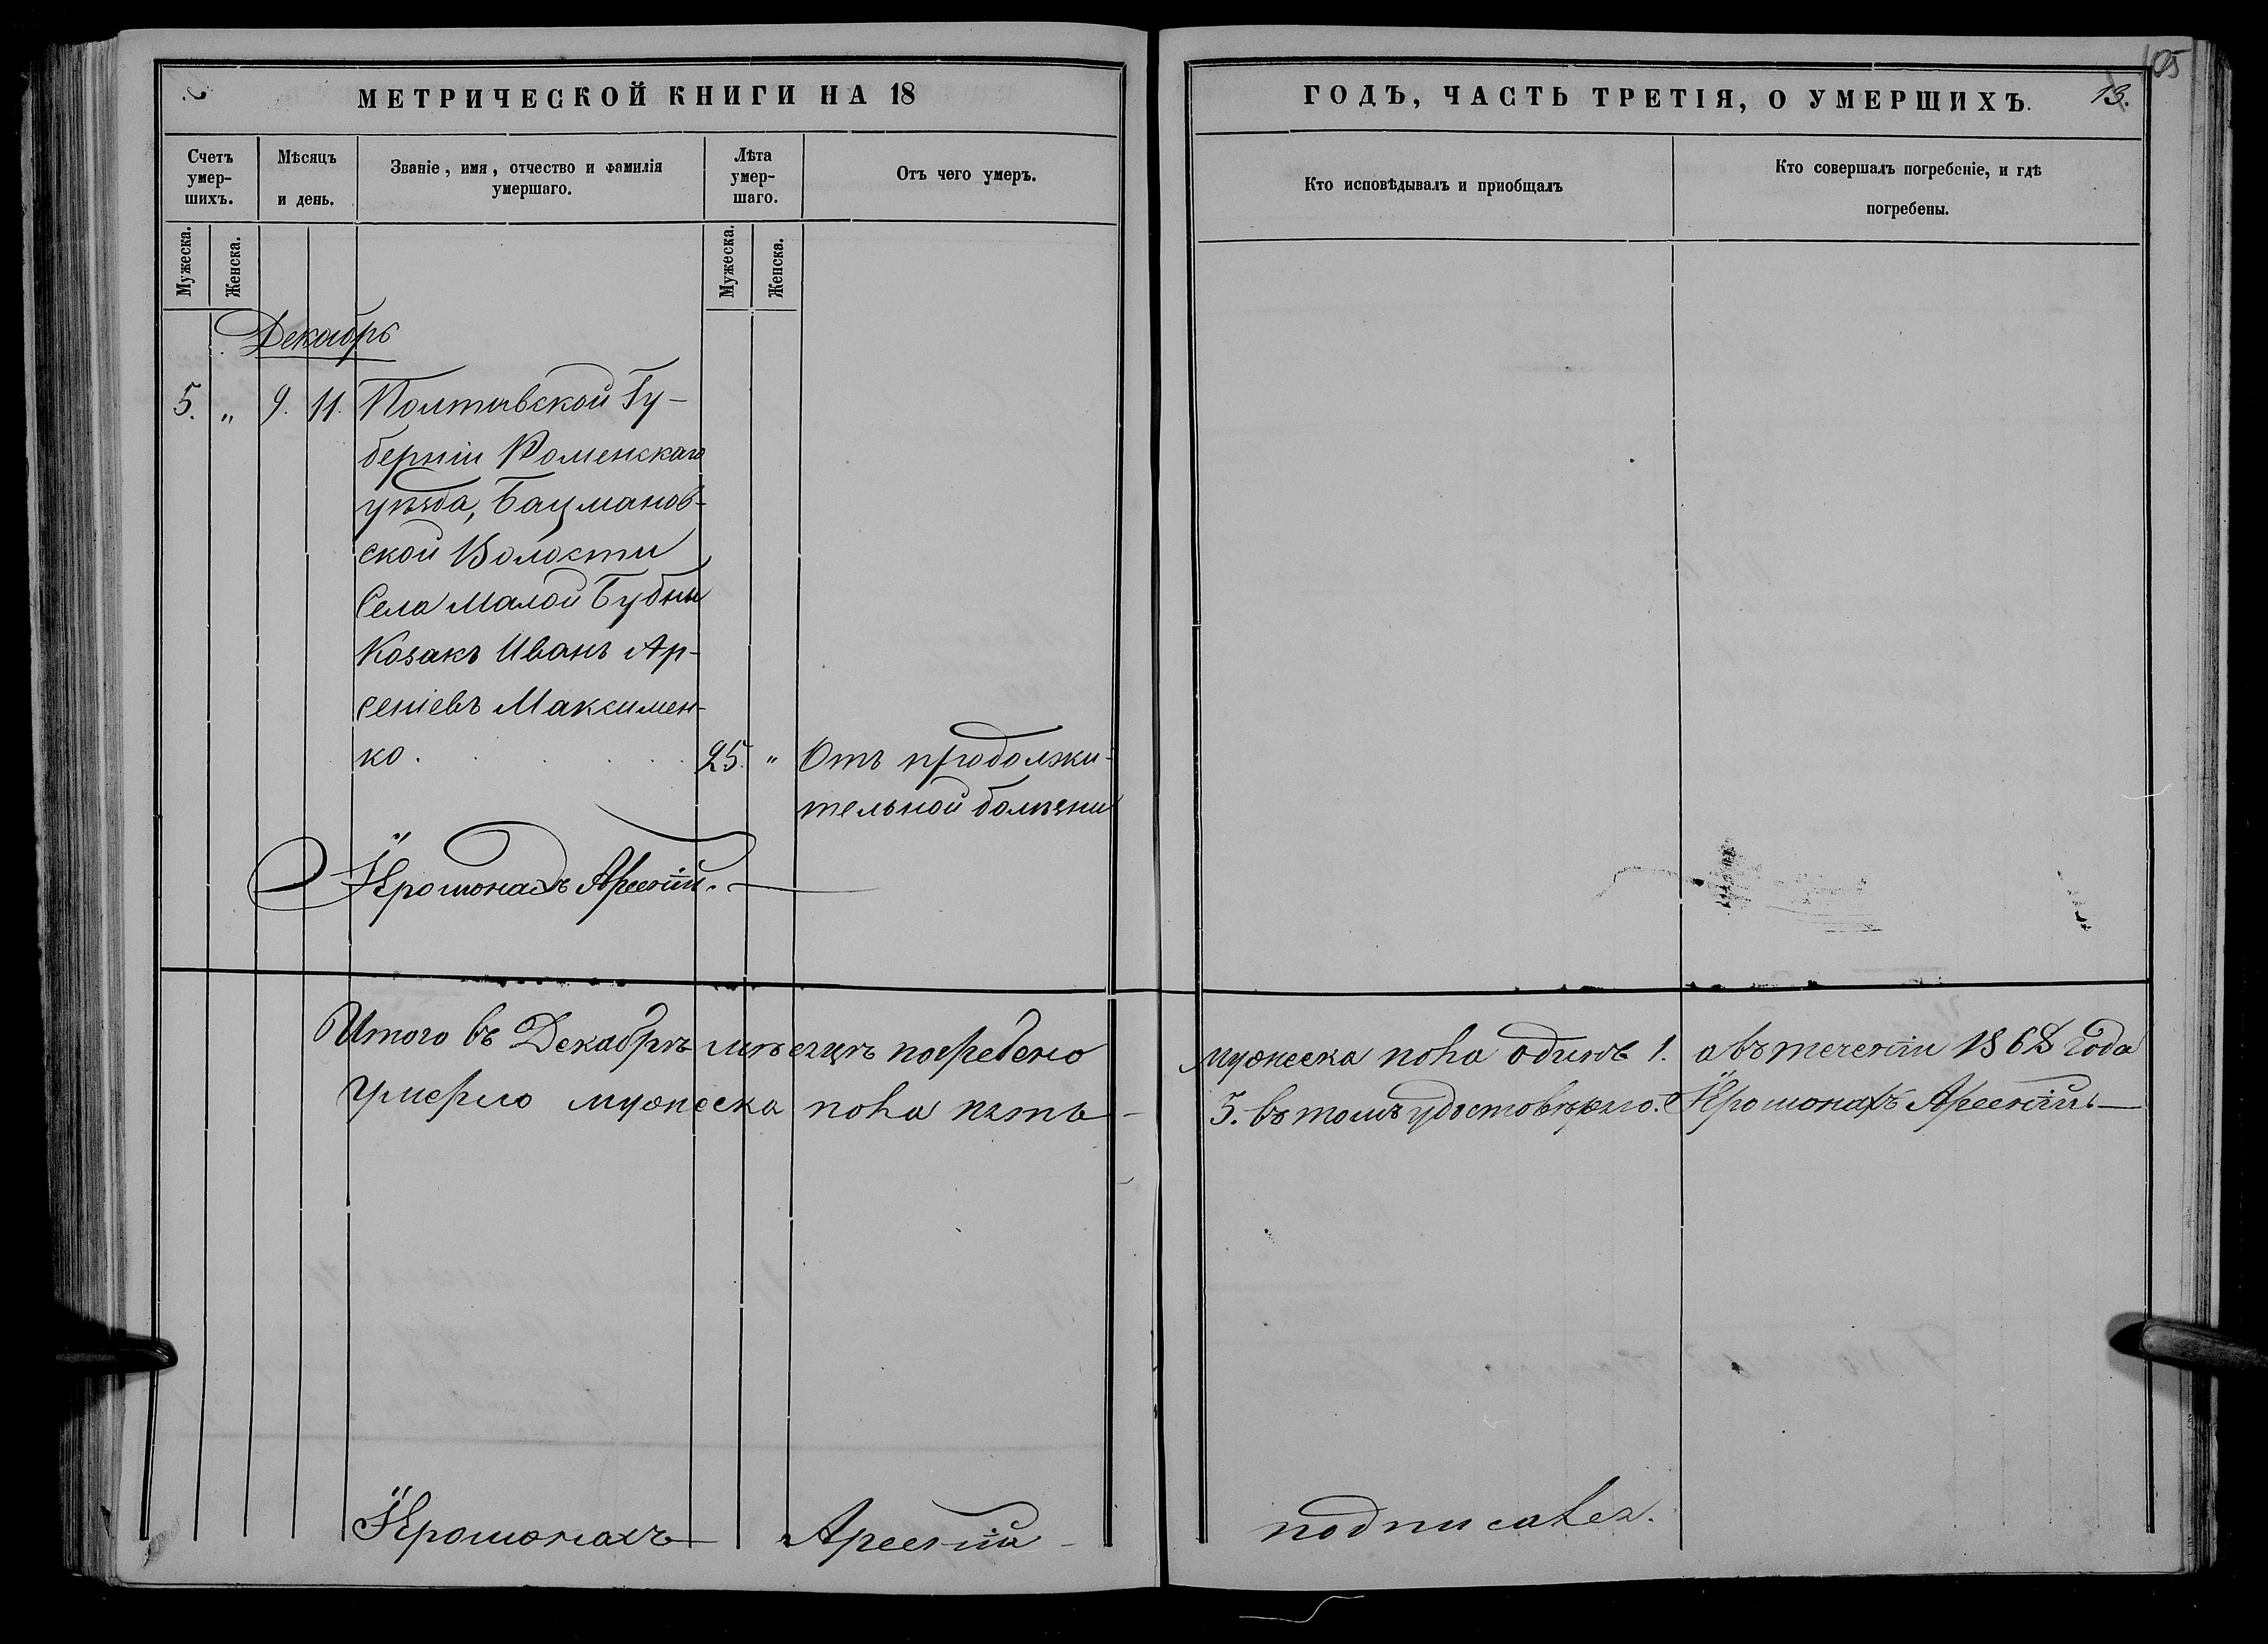 105
МЕТРИЧЕСКОЙ КНИГИ НА 18
ГОДЪ, ЧАСТЬ ТРЕТІЯ, О УМЕРШИХЪ.
13.
Счетъ умер-шихъ.
Мѣсяцъ и день.
Званіе, имя, отчество и фамилія умершаго.
Лѣта умер-шаго.
Отъ чего умеръ.
Кто исповѣдывалъ и приобщалъ
Кто совершалъ погребеніе, и гдѣ погребены.
Мужеска.
Женска.
Мужеска.
Женска.
Декабрь
5. „ 9. 11. Полтавской Гу-
берніи Роменскаго
уѣзда, Бацманов-
ской Волости
Села Малой Бубны
Козакъ Иванъ Ар-
сеніевъ Максимен-
ко. 25. „ Отъ продолжи-
тельной болѣзни
Іеромонахъ Арсеній.
Итого въ Декабрѣ мѣсяцѣ погребено мужеска пола одинъ 1. а въ теченіи 1868 года
умерло мужеска пола пять 5. въ томъ удостовѣряю. Іеромонахъ Арсеній.
Іеромонахъ Арсеній подписался.